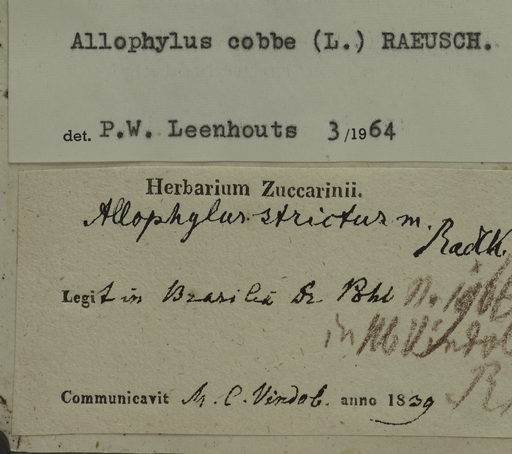 Allophylus cobbe (L.) RAEUSCH.
det. P.W. Leenhouts 3/1964
Herbarium Zuccarinii.
Allophylus strictus m.
Radlk.
Legit in Brasilia Dr Pohl
in Vindob
Communicavit M. C. Vindob. anno 1839